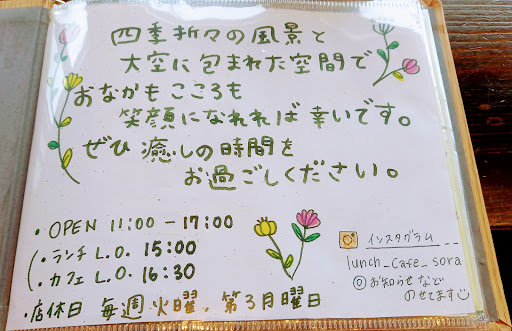 四季折々の風景と
大空に包まれた空間で
おなかも こころも
笑顔になれれば幸いです。
ぜひ 癒しの時間を
お過ごしください。
・OPEN 11:00 - 17:00
(・ランチ L.O. 15:00
(・カフェ L.O. 16:30
・店休日 毎週 火曜、第3月曜日
インスタグラム
lunch_cafe_sora
◎お知らせなど
のせてます